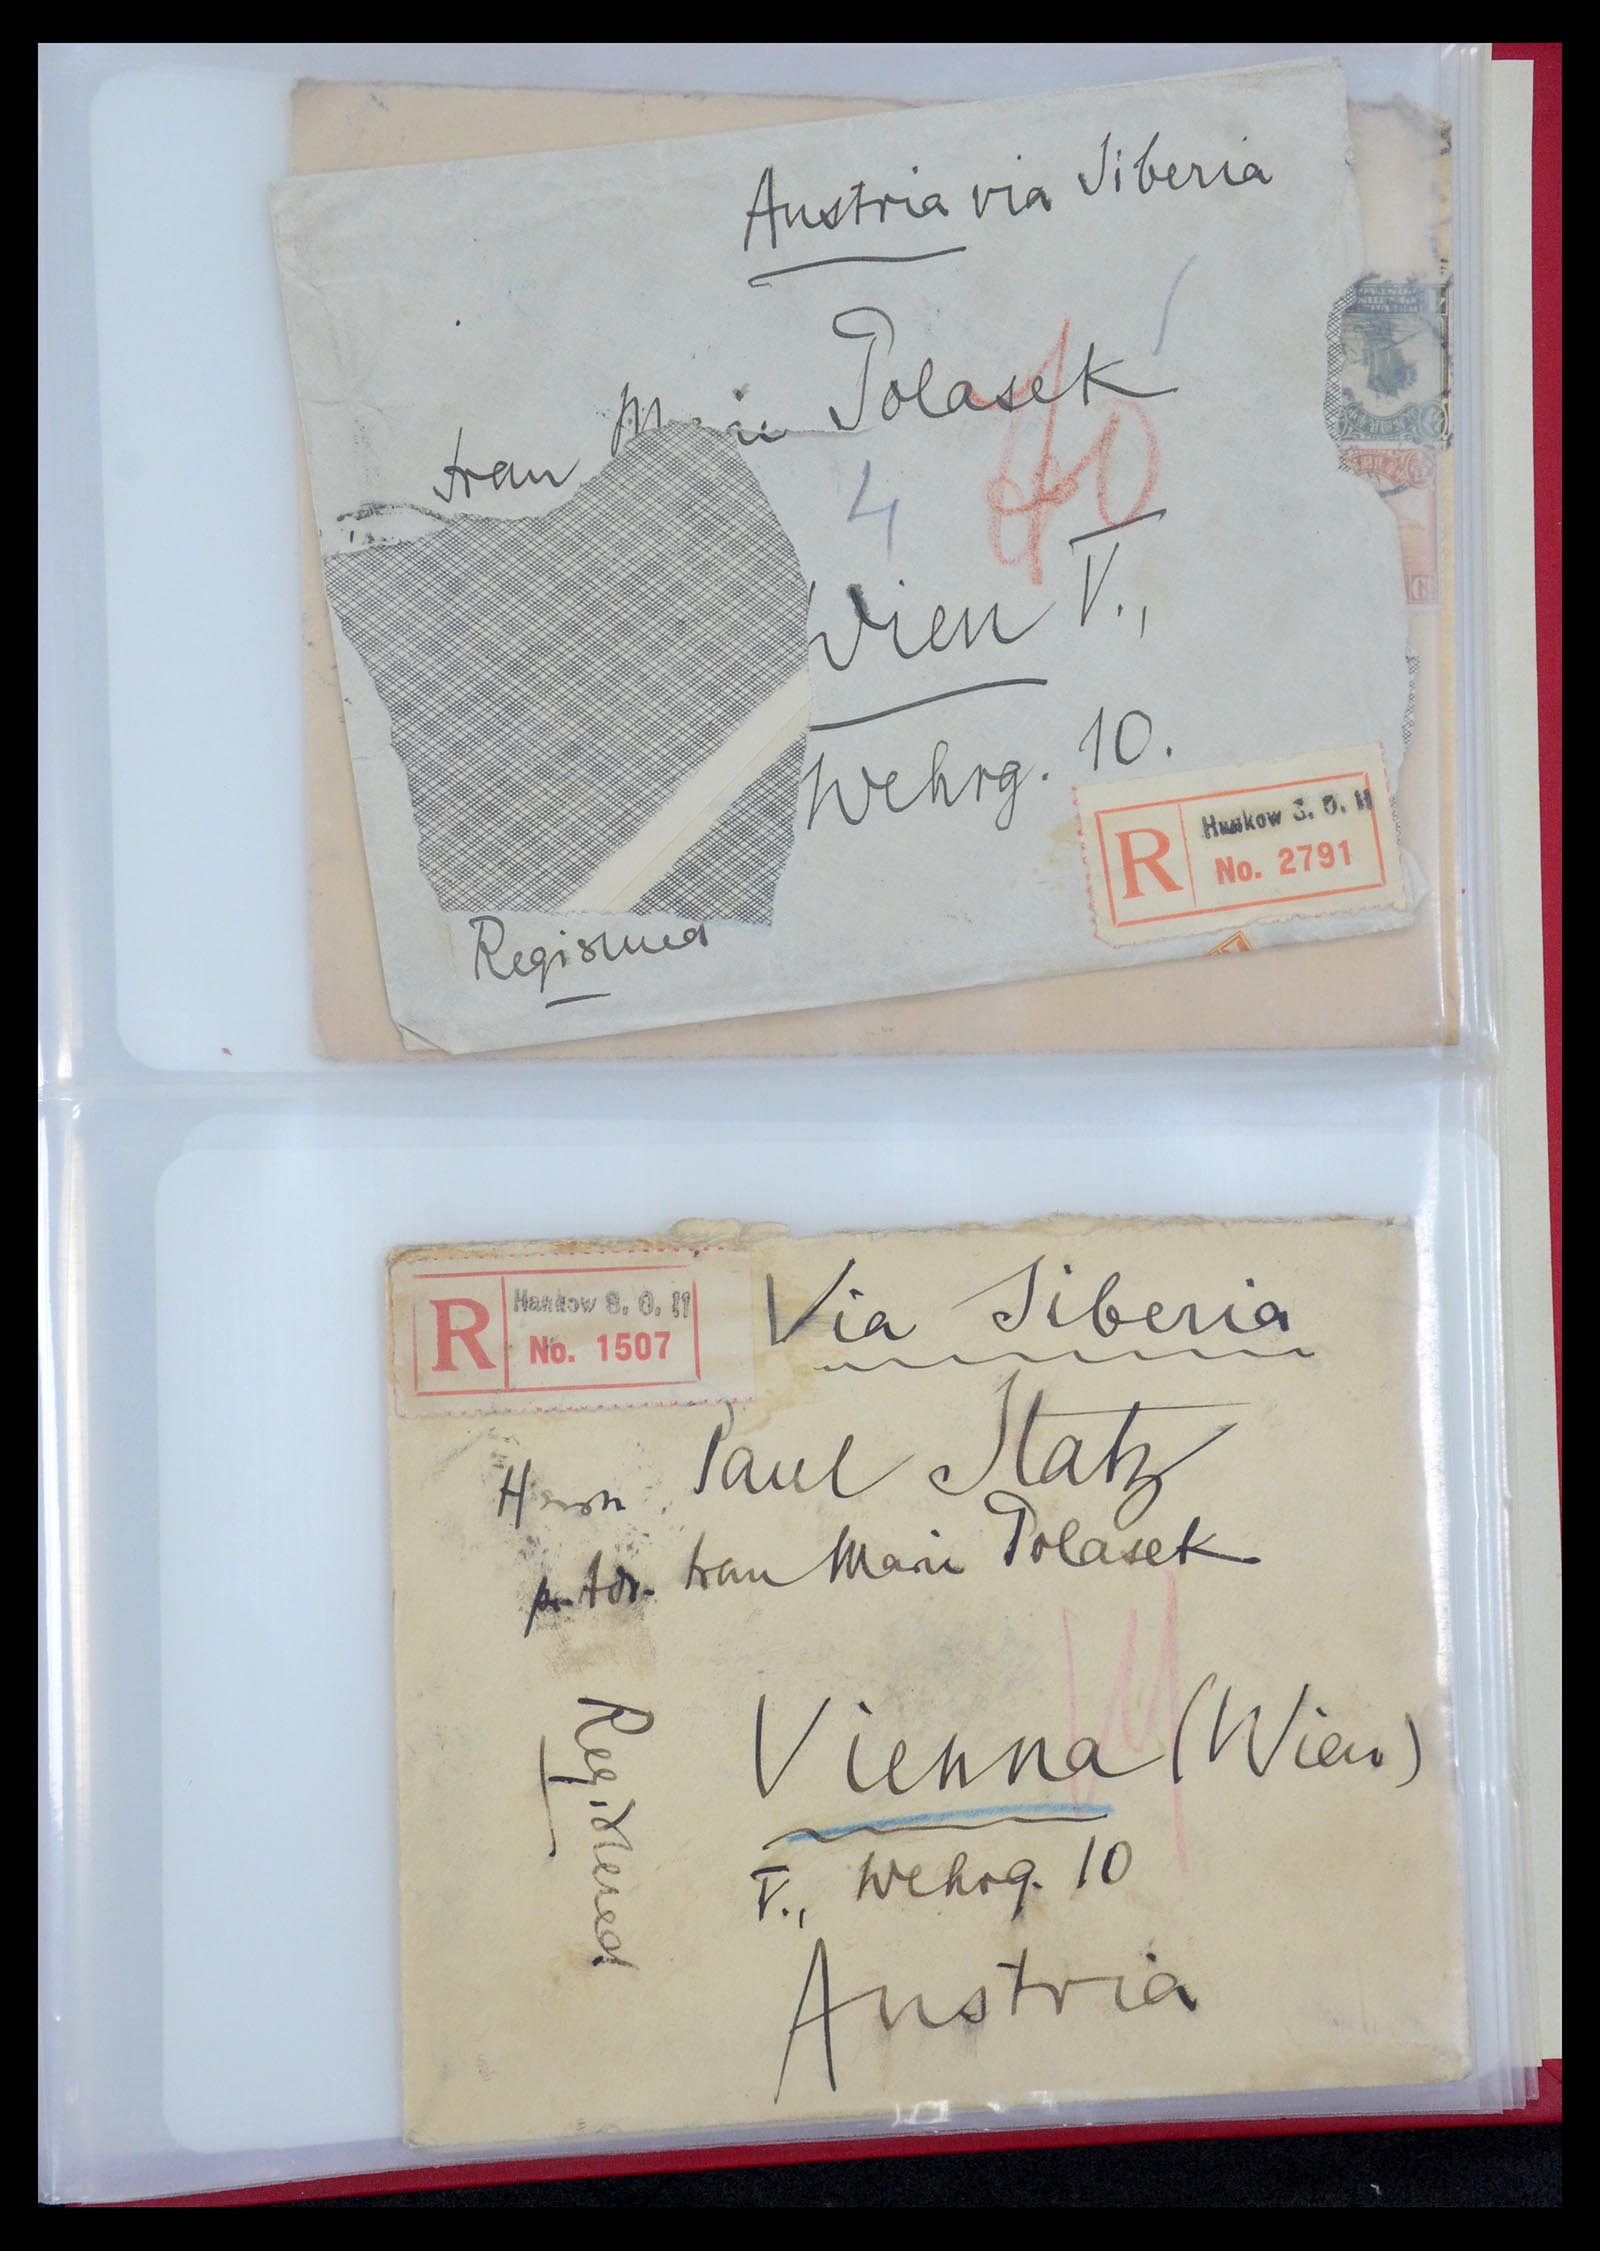 Austria via Siberia
Frau Polasek
40
4
Wien V.,
Wehrg. 10.
R
Hankow S. O. 11
No. 2791
Registered
R
Hankow S. O. 11
No. 1507
Via Siberia
Herrn Paul Statz
pr. Adr. Frau Marie Polasek
Registered
Vienna (Wien)
V., Wehrg. 10
Austria